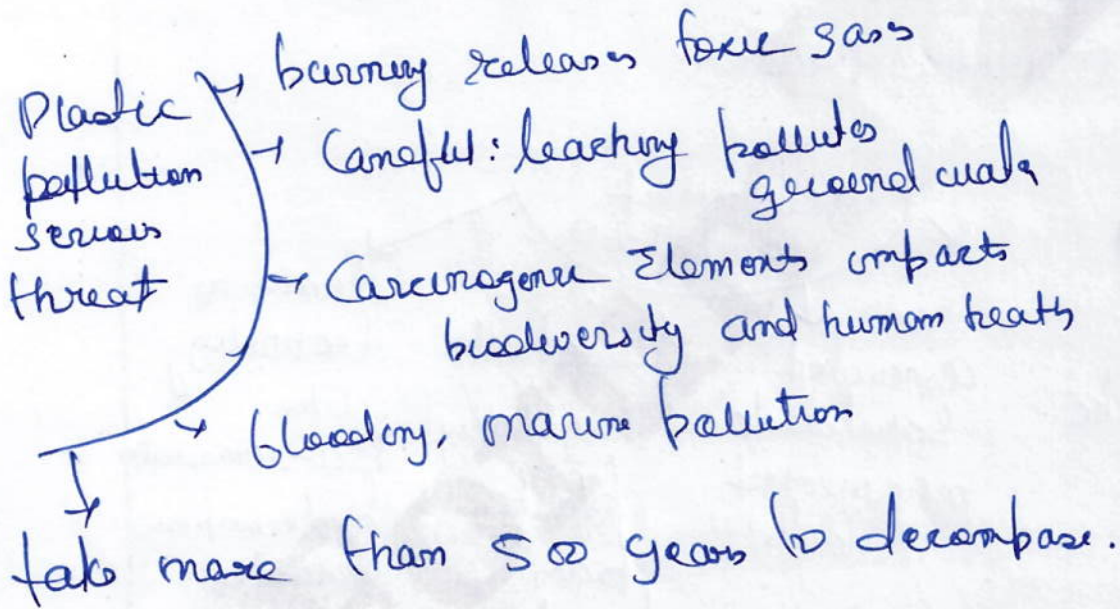 Plastic
pollution
serious
threat
→ burning releases toxic gases
→ : leaching pollutes
ground water
→ Carcinogenic Elements impacts
biodiversity and human health
→ flooding, marine pollution
take more than 500 years to decompose.